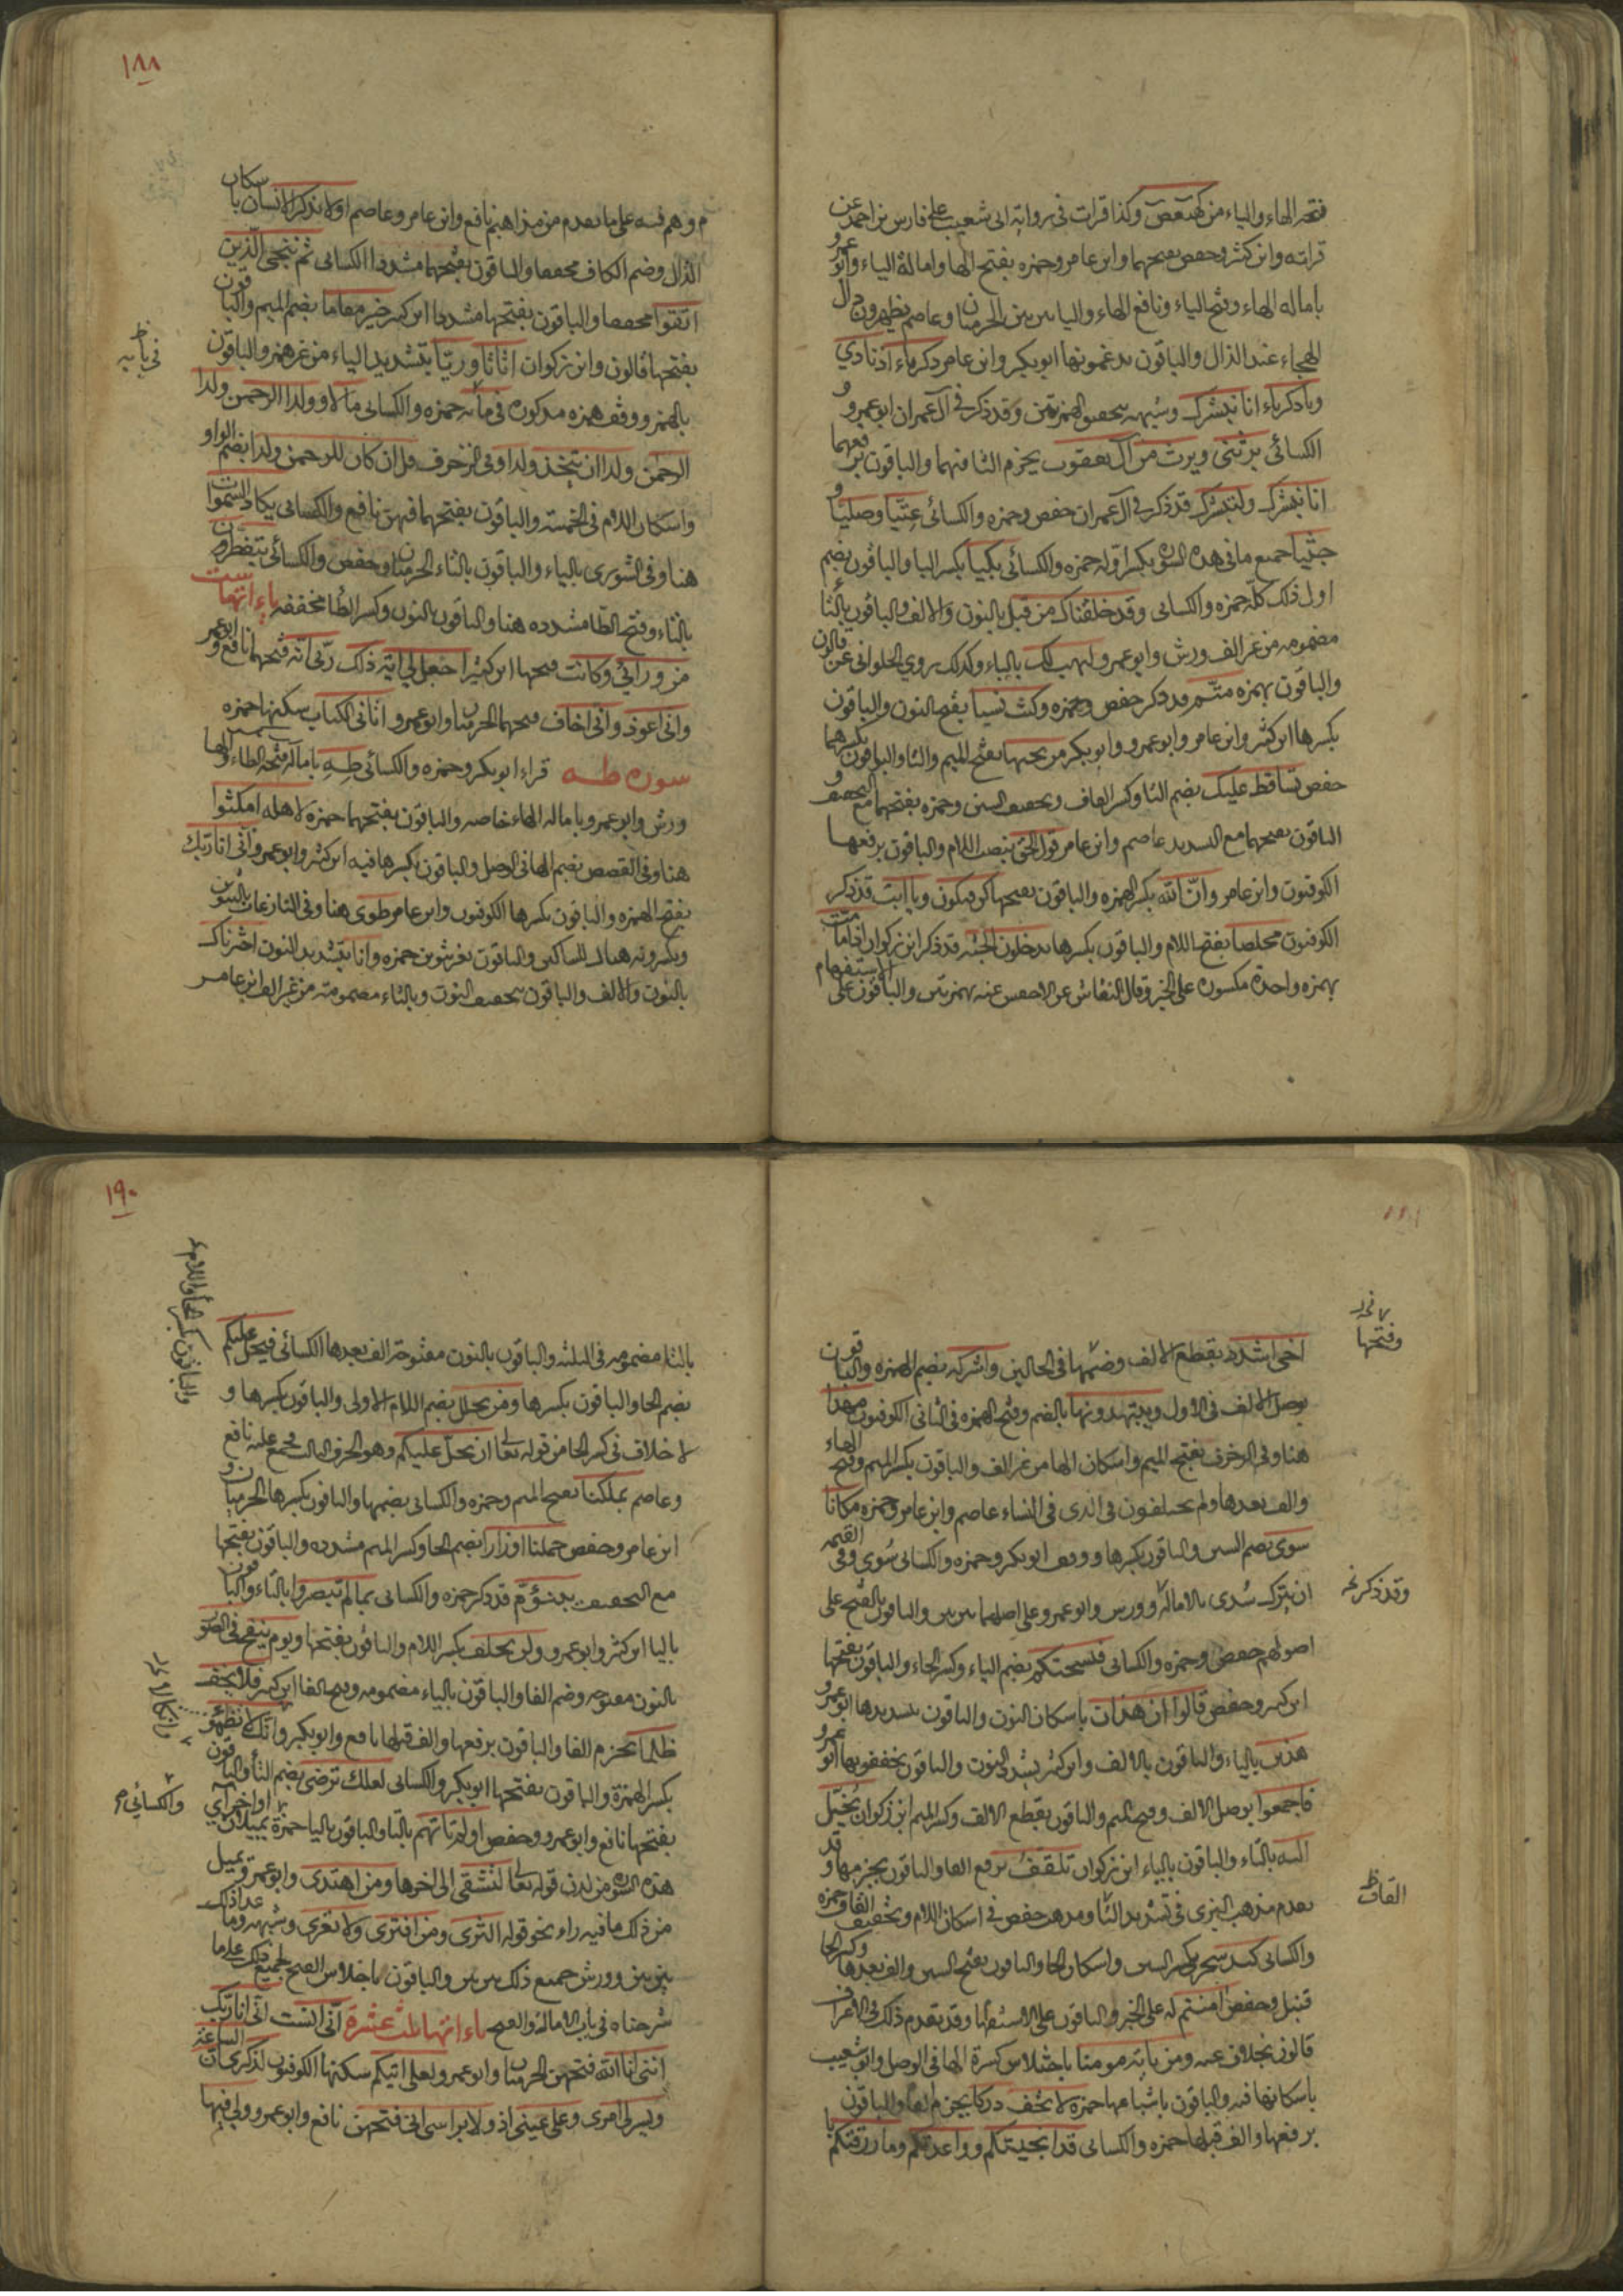 فتحه الهاء والياء من كهيعص وكذا قرات في رواية ابى شعيب على فارس بن احمد عن
قراته وابن كثير وحفص بفتحهما وابن عامر وحمزه بفتح الها وامالة الياء وابو عمرو
باماله الهاء وفتح الياء ونافع الهاء والياء بين بين الحرميان وعاصم يظهرون دال
الهجاء عند الذال والباقون يدغمونها ابو بكر وابن عامر زكرياء اذ نادي
ويا زكرياء انا نبشرك وشبهه بتحقيق الهمزتين وقد ذكر في آل عمران ابو عمرو و
الكسائى يرثنى ويرث من آل يعقوب بجزم الثا فيهما والباقون برفعهما
انا نبشرك ولتبشر قد ذكر في آل عمران حفص وحمزه والكسائى عتيا وصليا و
جثيا جميع ما في هذه السورة بكسر اوله حمزه والكسائى بكيا بكسر البا والباقون بضم
اول ذلك كله حمزه والكسائى وقد خلقناك من قبل بالنون والالف والباقون بالتا
مضمومه من غير الف ورش وابو عمرو ليهب لك بالياء وكذلك روي الحلوانى عن قالون
والباقون بهمزه متّ قد ذكر حفص وحمزه وكنت نسيا بفتح النون والباقون
بكسرها ابن كثير وابن عامر وابو عمرو وابو بكر من تحتها بفتح الميم والتا والباقون بكسرهما
حفص تساقط عليك بضم التا وكسر القاف وتخفيف السين وحمزه بفتحهما مع التخفيف و
الباقون بفتحهما مع التشديد عاصم وابن عامر قول الحق بنصب اللام والباقون برفعها
الكوفيون وابن عامر وان الله بكسر الهمزه والباقون بفتحها كن فيكون ويا ابت قد ذكر
الكوفيون مخلصا بفتح اللام والباقون بكسرها يدخلون الجنه قد ذكر ابن ذكوان اذا ما مت
بهمزه واحدة مكسوره على الخبر وقال النقاش عن الاخفش عنه بهمزتين والباقون على الاستفهام
١٨٨
وهم فيه على ما تقدم من مذاهبهم نافع وابن عامر وعاصم اولا يذكر الانسان باسكان
الذال وضم الكاف مخففا والباقون بفتحهما مشددا الكسائى ثم ننجى الذين
اتقوا مخففا والباقون بفتحها مشددا ابن كثير خير مقاما بضم الميم والباقون
بفتحها قالون وابن ذكوان اثاثا وريّا بتشديد الياء من غير همز والباقون
بالهمز ووقف حمزه مذكور في بابه حمزه والكسائى مالا وولدا الرحمن ولدا
الرحمن ولدا ان يتخذ ولدا وفى الزخرف قل ان كان للرحمن ولد بضم الواو
واسكان اللام فى الخمسة والباقون بفتحهما فيهن نافع والكسائى يكاد السموات
هنا وفى الشورى بالياء والباقون بالتاء الحرميان وحفص والكسائى يتفطرن
بالتاء وفتح الطا مشدده هنا والباقون بالنون وكسر الطا مخففه ياءاتها ست
من ورائى وكانت فتحها ابن كثير اجعل لى اية ذلك ربى انه فتحهما نافع وابو عمرو
وانى اعوذ وانى اخاف فتحهما الحرميان وابو عمرو اتانى الكتاب سكنها حمزه
سوره طه قراء ابو بكر وحمزه والكسائى طه بامالة فتحة الطاء والها
ورش وابو عمرو باماله الهاء خاصه والباقون بفتحهما حمزه لاهله امكثوا
هنا وفى القصص بضم الها فى الوصل والباقون بكسرها فيه ابن كثير وابو عمرو انى انا ربك
بفتح الهمزه والباقون بكسرها الكوفيون وابن عامر طوى هنا وفى النازعات بالتنوين
ويكسرونه هناك للساكنين والباقون بغير تنوين حمزه وانا بتشديد النون اخترناك
بالنون والالف والباقون بتخفيف النون وبالتاء مضمومة من غير الف ابن عامر
اخى اشدد بقطع الالف وضمها فى الحالين واشركه بضم الهمزه والباقون
بوصل الالف فى الاول ويبتدونها بالضم وفتح الهمزه فى الثانى الكوفيون مهدا
هنا وفى الزخرف بفتح الميم واسكان الها من غير الف والباقون بكسر الميم وفتح الهاء
والف بعدها ولم يختلفون فى الذى فى النساء عاصم وابن عامر وحمزه مكانا
سوى بضم السين والباقون بكسرها ووقف ابو بكر وحمزه والكسائى سوى وفى القيمه
ان يترك سدى بالامالة وورش وابو عمرو على اصلهما بين بين والباقون بالفتح على
اصولهم حفص وحمزه والكسائى فيسحتكم بضم الياء وكسر الحاء والباقون بفتحها
ابن كثير وحفص قالوا ان هذان باسكان النون والباقون بتشديدها ابو عمرو
هذين بالياء والباقون بالالف وابن كثير يشدد النون والباقون يخففونها ابو عمرو
فاجمعوا بوصل الالف وفتح الميم والباقون بقطع الالف وكسر الميم ابن ذكوان تخيل
اليه بالتاء والباقون بالياء ابن ذكوان تلقف برفع الفا والباقون بجزمها وقد
تقدم مذهب البزى فى تشديد التا ومذهب حفص فى اسكان اللام وتخفيف القاف وحمزه
والكسائى كيد سحر بكسر السين واسكان الحا والباقون بفتح السين والف بعدها وكسر الحا
قنبل وحفص امنتم له على الخبر والباقون على الاستفهام وقد تقدم ذلك فى الاعراف
قالون بخلاف عنه ومن ياته مومنا باختلاس كسرة الها فى الوصل وابو شعيب
باسكانها فيه والباقون باشباعها حمزه لا تخف دركا بجزم الفا والباقون
برفعها والف قبلها حمزه والكسائى قد انجيتكم وواعدتكم وما رزقتكم
وفتحها
وقد ذكر
القاف
١٩٠
بالتاء مضمومه فى الثلثه والباقون بالنون مفتوحة الف بعدها الكسائى فيحل عليكم
بضم الحا والباقون بكسرها ومن يحلل بضم اللام الاولى والباقون بكسرها و
لا خلاف فى كسر الحا من قوله تعالى ان يحل عليكم وهو الحرف الثالث مجمع عليه نافع
وعاصم بملكنا بفتح الميم وحمزه والكسائى بضمها والباقون بكسرها الحرميان و
ابن عامر وحفص حملنا اوزارا بضم الحا وكسر الميم مشدده والباقون بفتحها
مع التخفيف يبنؤم قد ذكر حمزه والكسائى بما لم تبصروا بالتاء والباقون
باليا ابن كثير وابو عمرو ولن تخلفه بكسر اللام والباقون بفتحها ويوم ينفخ فى الصور
بالنون مفتوحه وضم الفا والباقون بالياء مضمومه وفتح الفا ابن كثير فلا يخف
ظلما بجزم الفا والباقون برفعها والف قبلها نافع وابو بكر وانك لا تظمؤ
بكسر الهمزة والباقون بفتحها ابو بكر والكسائى لعلك ترضى بضم التاء والباقون
بفتحها نافع وابو عمرو وحفص اولم تاتهم بالتا والباقون باليا حمزة يميلان اواخر آي
هذه السورة من لدن قوله تعالى لتشقى الى اخرها ومن اهتدى وابو عمرو يميل
من ذلك ما فيه راء نحو قوله الثرى ومن افترى ولا تعرى وشبهه وما عدا ذلك
بين بين وورش جميع ذلك بين بين والباقون باخلاص الفتح لجميع ذلك على ما
شرحناه فى باب الامالة والفتح ياءاتها ثلث عشرة انى انست انى انا ربك
اننى انا الله فتحهن الحرميان وابو عمرو لعلى اتيكم سكنها الكوفيون لذكرى ان الساعة
ويسر لى امرى وعلى عينى اذ ولا براسى انى فتحهن نافع وابو عمرو ولى فيها
والباقون بكسر الحا واللام
والكسائي